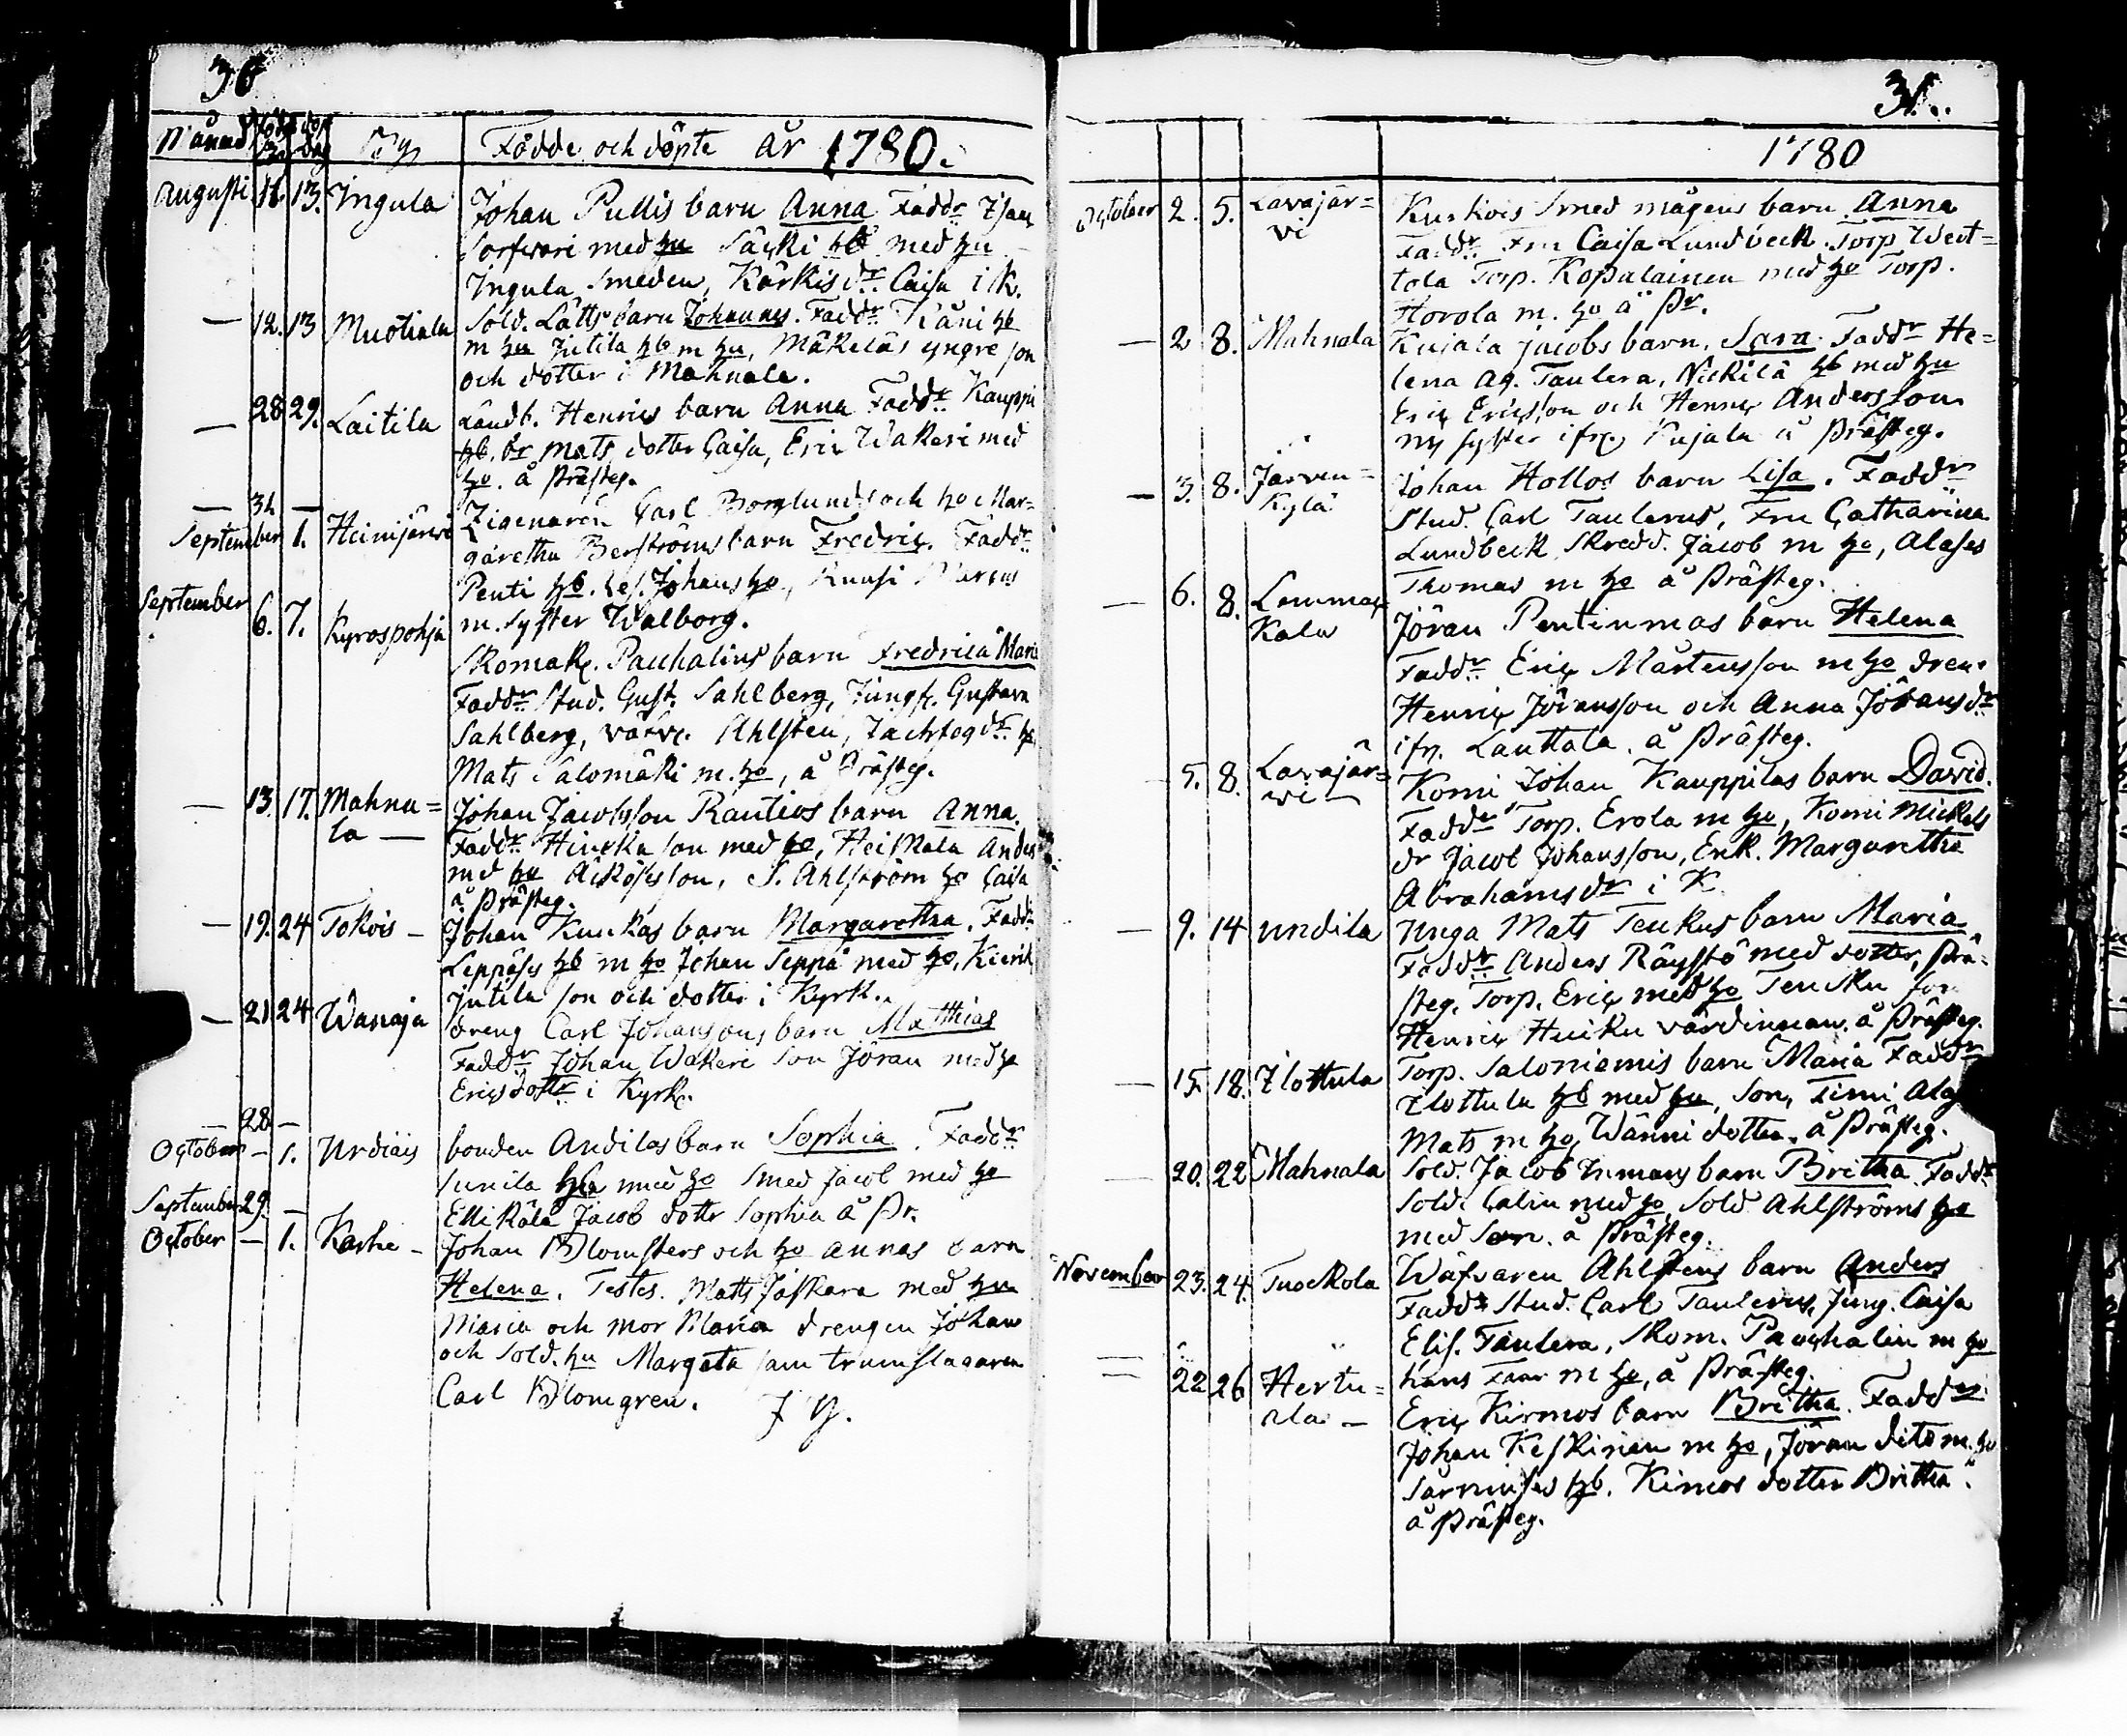 30
Månad Född dag döpt dag By Födde och döpte År 1780.
Augusti 11. 13. Ingula Johan Pullis barn Anna Faddr Isac
Sorfvari med hu Säcki hb med hu
Ingula Smeden, Kärkis dr. Caisa i K.
— 12. 13 Muotiala Sold. Lätts barn Johannes. Faddr Räni hb
m hu Jutila hb m hu, Mäkeläs yngre son
och dotter i Mahnala.
— 28 29. Laitila Landb. Henrics barn Anna Faddr Kauppi
hb. br Mats dotter Caisa, Eric Wakeri med
ho. å Prästeg.
— 31 —
September 1. Heinijärvi Zigenaren Carl Borglunds och ho Mar-
garetha Berströms barn Fredric. Faddr
Penti hb. Johans ho, Kuusi Marcus
m. Syster Walborg.
September 6. 7. Kyrospohja
Skomak. Pauchalins barn Fredrica Maria
Faddr Stud. Gust. Sahlberg, Jungf. Gustava
Sahlberg, väfv. Ahlsten,
Mats Salomäki m. ho, å Prästeg.
— 13. 17. Mahna=
la — Johan Jacobsson Rautios barn Anna.
Faddr Hincka son med ho, Heiskala Anders
med hu Äikösses son, S. Ahlström ho Caisa
å Prästeg.
— 19. 24 Tokois — Johan Kuukas barn Margaretha. Faddr
Leppäses hb m ho Johan Seppä med ho,
Jutila son och dotter i Kyrk.
— 21 24 Wanaja dreng Carl Johanssons barn Matthias
Faddr Johan Wakeri Son Jöran med ho
Ericsdottr i Kyrk.
28 —
October — 1. Urdiais bonden Andilas barn Sophia. Faddr
Sunila hb med ho Smed Jacob med ho
Ellikälä Jacob dottr Sophia å Pr.
September 29. —
October — 1. Karhe — Johan Blomsters och ho Annas barn
Helena. Testes. Matts Jäskara med hu
Maria och mor Maria drengen Johan
och Sold. hu Margeta sam trumslagaren
Carl Blomgren. J G.
31.
1780
October 2. 5. Lavajär=
vi Kurkois Smed mågens barn Anna
Faddr. Fru Caisa Lundbeck. Torp Weit=
tola Torp. Kopalainen med ho Torp.
Horola m. ho å Pr.
— 2 8. Mahnala Kujala Jacobs barn, Sara. Faddr He=
lena Ag. Taulera, Nickilä hb med hu
Eric Ericsson och Henric Andersson
ny syster ifr. Kujala å Prästeg.
— 3. 8. Järven=
Kylä Johan Hollos barn Lisa. Faddr
Stud. Carl Taulerus, Fru Catharina
Lundbeck Skredd. Jacob m ho, Alases
Thomas m ho å Prästeg.
— 6. 8. Lemmac
Kala Jöran Pentinmas barn Helena
Faddr Eric Mårtensson m ho dren.
Henric Jöransson och Anna Jöransdr
ifr. Lauttala. å Prästeg.
— 5. 8. Lavajär=
vi — Komi Johan Kauppilas barn David.
Faddr Torp. Erola m ho, Komi Mickels
dr Jacob Johansson, Enk. Margaretha
Abrahamsdr i K
— 9. 14 Undila Unga Mats Teukus barn Maria
Faddr Anders Räystö med dotter, Prä-
steg. Torp. Eric med ho Teucku son
Henric Huiku värdinnan. å Prästeg.
— 15. 18. Ylottula Torp. Saloniemis barn Maria Faddr
Ylottula hb med hu, Son, Timi
Mats m ho, Wänni dotter. å Prästeg.
— 20. 22 Mahnala Sold. Jacob barn Britha Faddr
Sold. Calin med ho, Sold Ahlströms ho
med Son. å Prästeg.
November 23. 24. Tuockola Wäfvaren Ahlstens barn Anders
Faddr Stud. Carl Taulerus, Jung. Caisa
Elis. Taulera, Skom. Pauchalin m ho
hans Faar m ho, å Prästeg.
— 22 26 Hertu=
ala — Eric Kirmos barn Britha. Faddr
Johan Keskinen m ho, Jöran dito m. ho
Särminses hb. Kirmos dotter Britha.
å Prästeg.